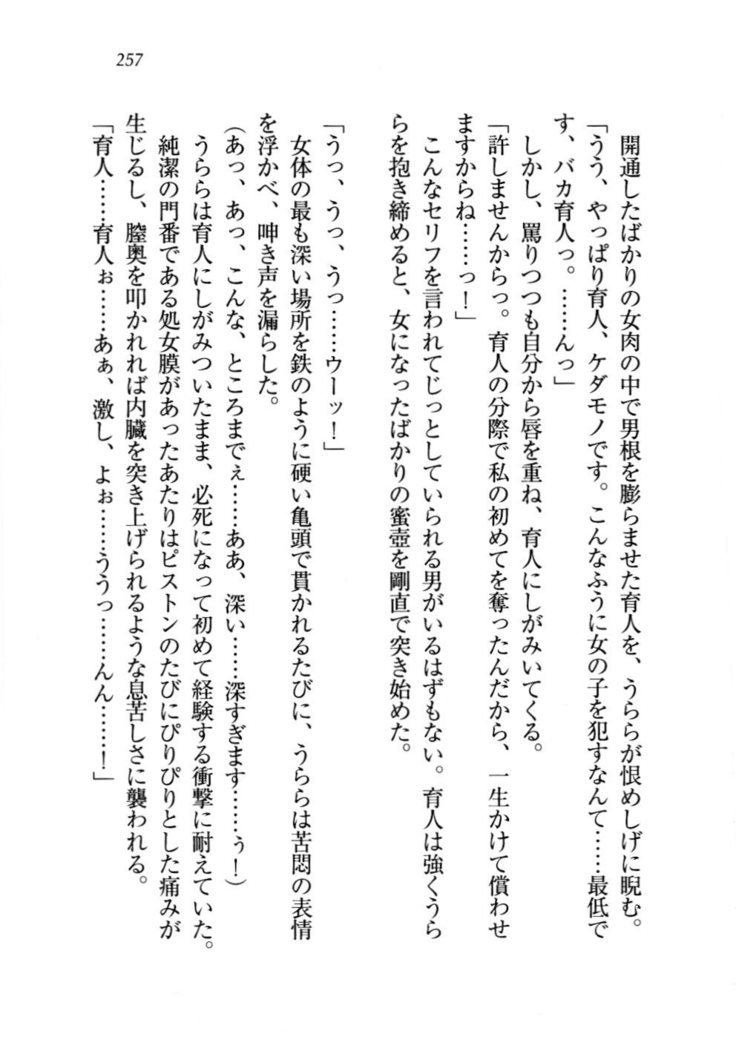 257
開通したばかりの女肉の中で男根を膨らませた育人を、うららが恨めしげに睨む。
「うう、やっぱり育人、ケダモノです。こんなふうに女の子を犯すなんて……最低で
す、バカ育人っ。……んっ」
しかし、罵りつつも自分から唇を重ね、育人にしがみいてくる。
「許しませんからっ。育人の分際で私の初めてを奪ったんだから、一生かけて償わせ
ますからね……っ！」
こんなセリフを言われてじっとしていられる男がいるはずもない。育人は強くうら
らを抱き締めると、女になったばかりの蜜壺を剛直で突き始めた。
「うっ、うっ、うっ……ウーッ！」
女体の最も深い場所を鉄のように硬い亀頭で貫かれるたびに、うららは苦悶の表情
を浮かべ、呻き声を漏らした。
（あっ、あっ、こんな、ところまでぇ……ああ、深い……深すぎます……ぅ！）
うららは育人にしがみついたまま、必死になって初めて経験する衝撃に耐えていた。
純潔の門番である処女膜があったあたりはピストンのたびにぴりぴりとした痛みが
生じるし、膣奥を叩かれれば内臓を突き上げられるような息苦しさに襲われる。
「育人……育人ぉ……あぁ、激し、よぉ……ううっ……んん……！」